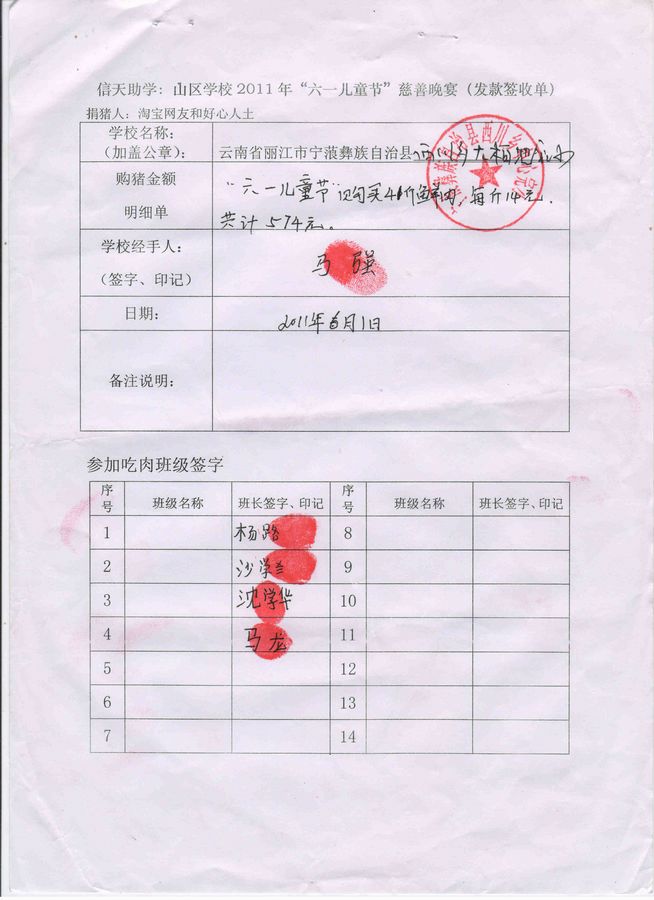 信天助学：山区学校2011年“六一儿童节”慈善晚宴（发款签收单）
捐猪人：淘宝网友和好心人士
学校名称：
（加盖公章）：
云南省丽江市宁蒗彝族自治县西川
购猪金额
明细单
“六一儿童节”购买41斤鲜肉，每斤14元．
共计574元。
学校经手人：
（签字、印记）
马强
日期：
2011年6月1日
备注说明：
参加吃肉班级签字
序号 班级名称 班长签字、印记 序号 班级名称 班长签字、印记
1 杨路 8
2 沙学兰 9
3 沈学华 10
4 马龙 11
5 12
6 13
7 14